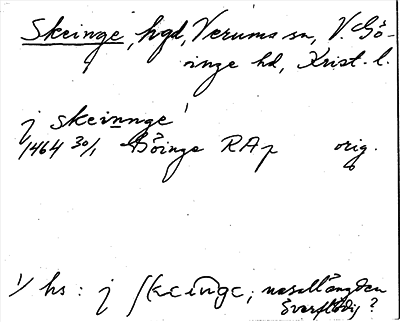 Skeinge, hgd, Verums sn, V. Gö-
inge hd, Krist. l.
j skeinnge 1
1464 30/1 Göinge RAp orig.
1/ hs: j skeinge; nasallängden
överflödig?